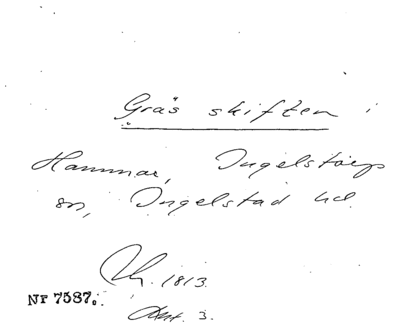 Gräs skiften i
Hammar, Ingelstorps
sn, Ingelstad hd.
1813.
Nr 7587.
Ant. 3.